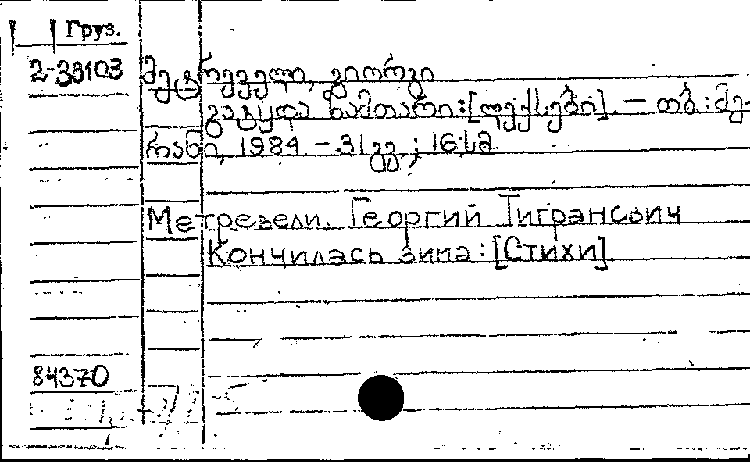 Груз.
2-38103 მეტრეველი, გიორგი
გაგყდა ზამთარი: [ლექსები]. — თბ.: მე-
რანი, 1984. - 31 გვ.; 16 სმ
Метревели, Георгий Тигранович
Кончилась зима: [Стихи]
84370